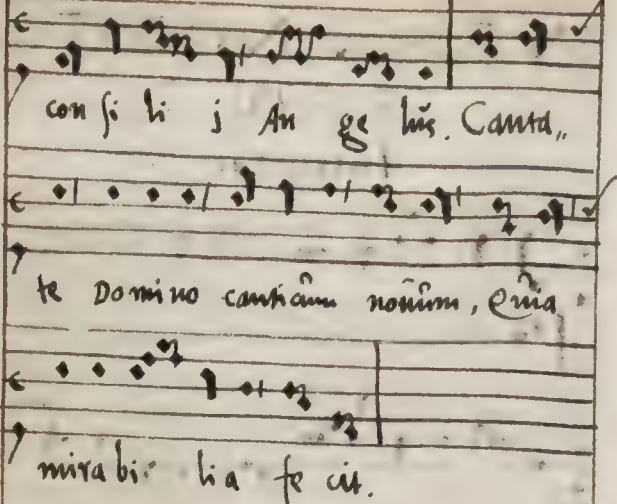 con si li j An ge lus. Canta,,
te Domino canticum novum, Quia
mirabi lia fe cit.